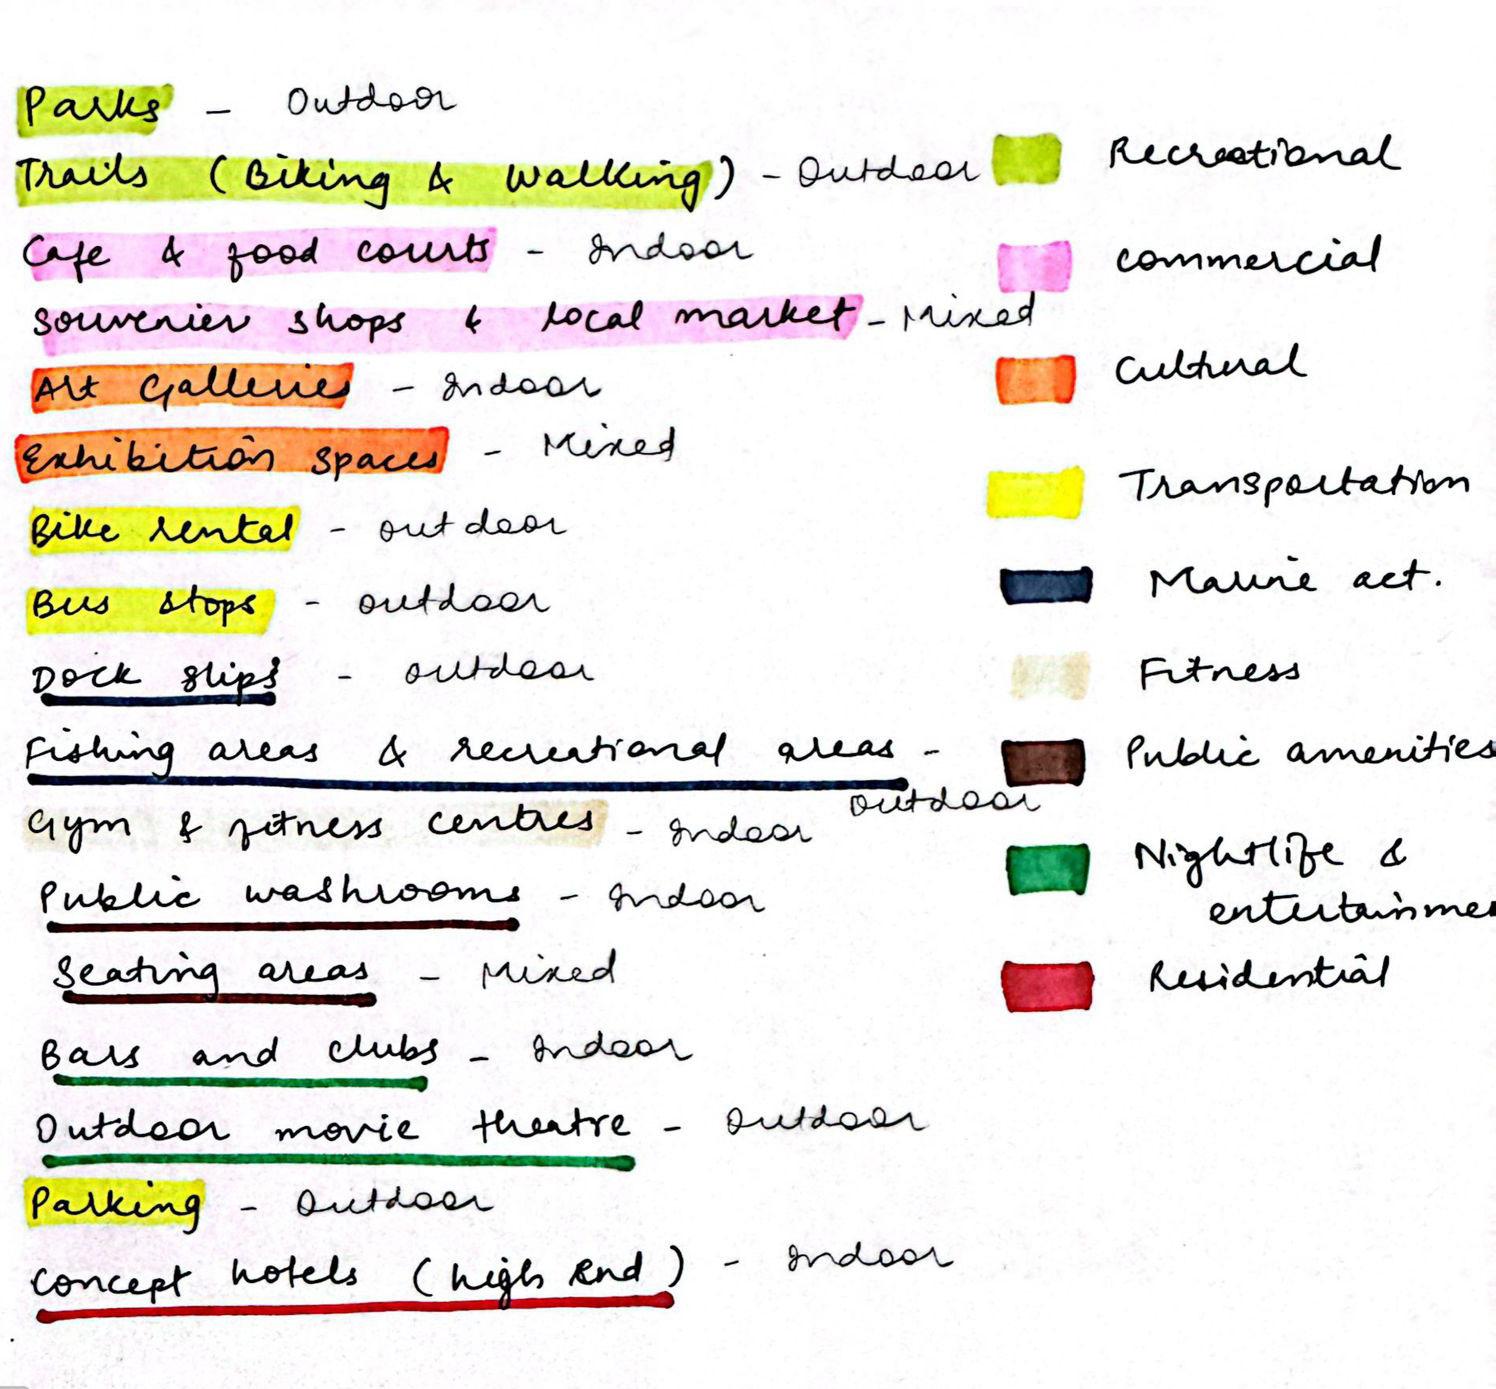 Parks - Outdoor
Trails (Biking & Walking) - Outdoor
Cafe & food courts - Indoor
Souvenier shops & local market - Mixed
Art Galleries - Indoor
Exhibition spaces - Mixed
Bike rental - outdoor
Bus stops - outdoor
Dock slips - outdoor
Fishing areas & recreational areas -
outdoor
Gym & fitness centres - Indoor
Public washrooms - Indoor
Seating areas - Mixed
Bars and clubs - Indoor
Outdoor movie theatre - Outdoor
Parking - Outdoor
Concept hotels (high end) - Indoor
Recreational
commercial
Cultural
Transportation
Marine act.
Fitness
Public amenities
Nightlife &
entertainme
Residential